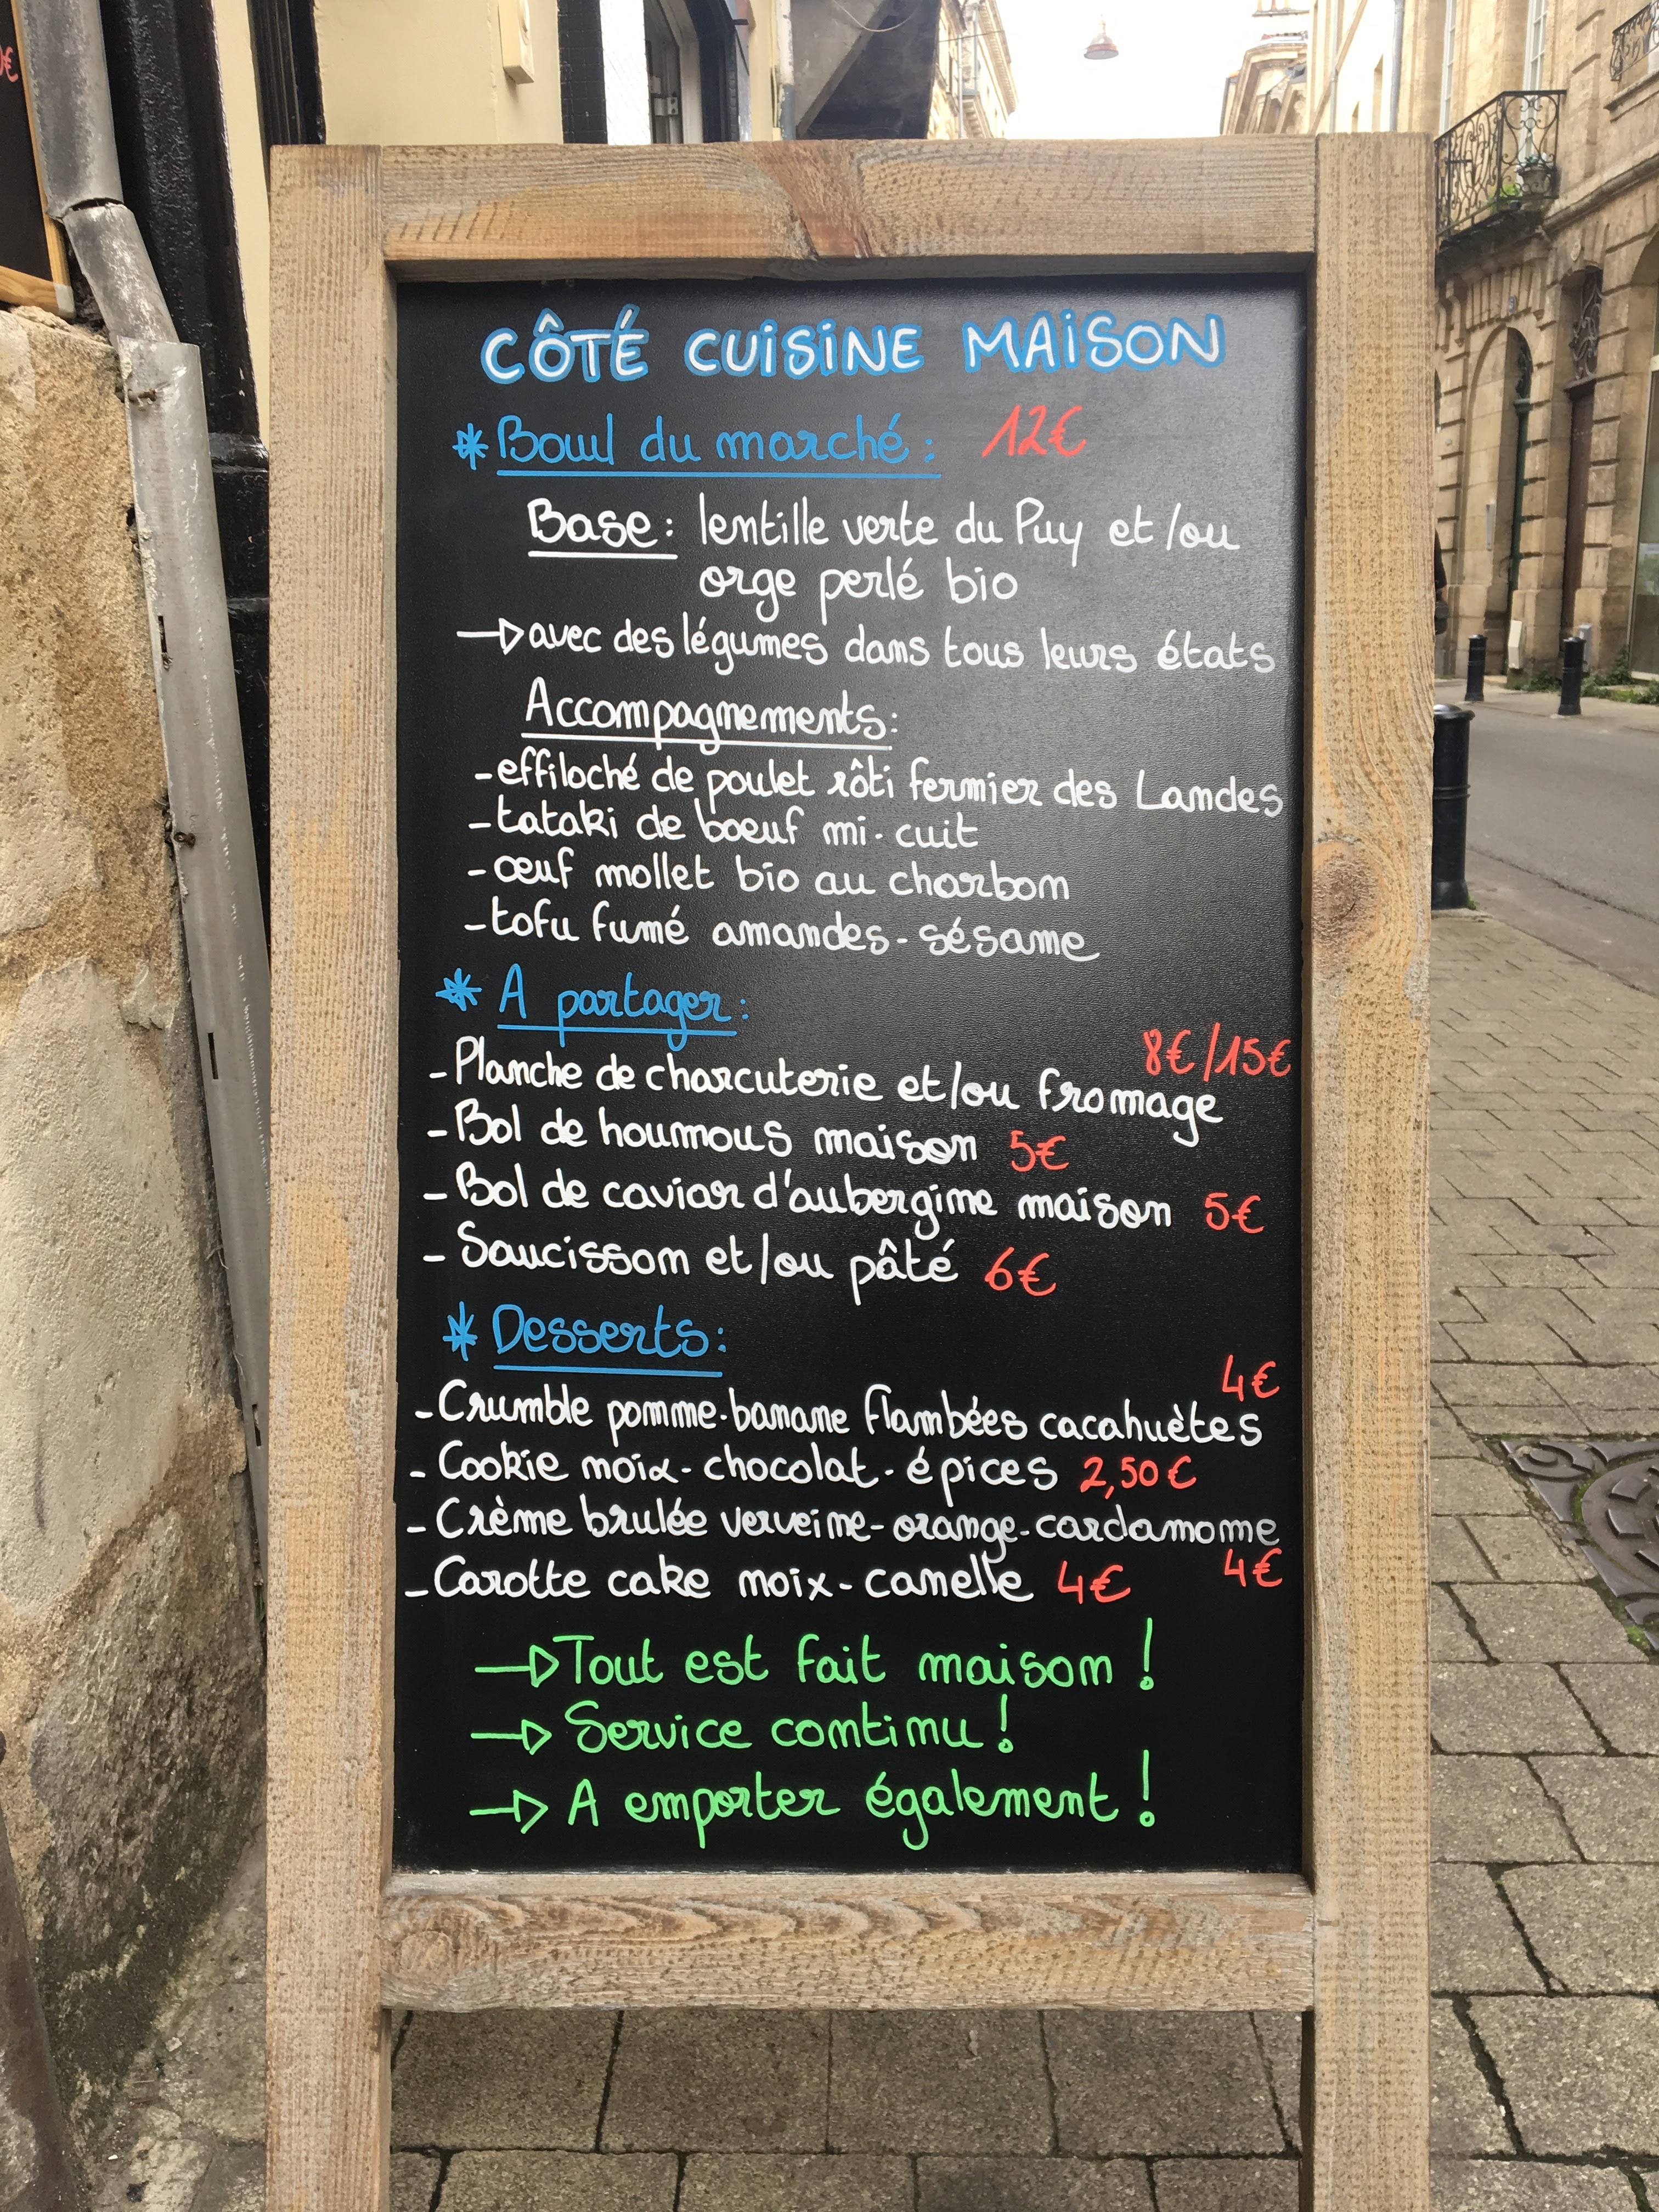 CÔTÉ CUISINE MAISON
* Bowl du marché : 12€
Base : lentille verte du Puy et/ou
orge perlé bio
→ avec des légumes dans tous leurs états
Accompagnements :
- effiloché de poulet rôti fermier des Landes
- tataki de boeuf mi-cuit
- œuf mollet bio au charbon
- tofu fumé amandes-sésame
* A partager :
8€/15€
- Planche de charcuterie et/ou fromage
- Bol de houmous maison 5€
- Bol de caviar d'aubergine maison 5€
- Saucisson et/ou pâté 6€
* Desserts :
4€
- Crumble pomme-banane flambées cacahuètes
- Cookie noix-chocolat-épices 2,50€
- Crème brulée verveine-orange-cardamome
4€
- Carotte cake noix-canelle 4€
→ Tout est fait maison !
→ Service continu !
→ A emporter également !
€